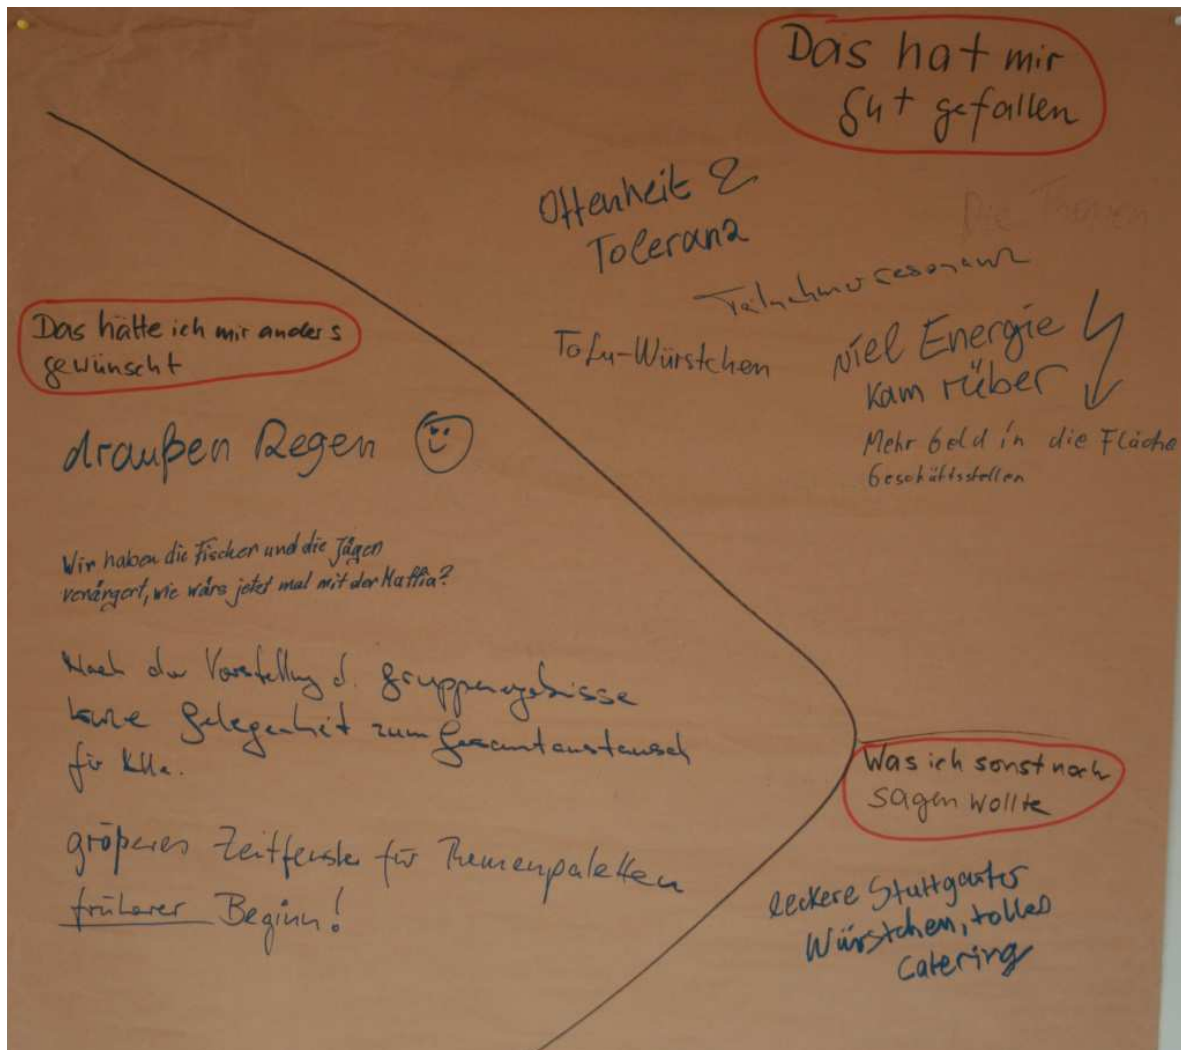 Das hat mir
gut gefallen
Offenheit &
Toleranz
Die Themen
Teilnehmerresonanz
Tofu-Würstchen
viel Energie
kam rüber
Mehr Geld in die Fläche
Geschäftsstellen
Das hätte ich mir anders
gewünscht
draußen Regen
Wir haben die Fischer und die Jäger
verärgert, wie wärs jetzt mal mit der Maffia?
Nach der Vorstellung d. Gruppenergebnisse
kurze Gelegenheit zum Gesamtaustausch
für
größeres Zeitfenster für Themenpaletten
früherer Beginn!
Was ich sonst noch
sagen wollte
leckere Stuttgarter
Würstchen, tolles
Catering